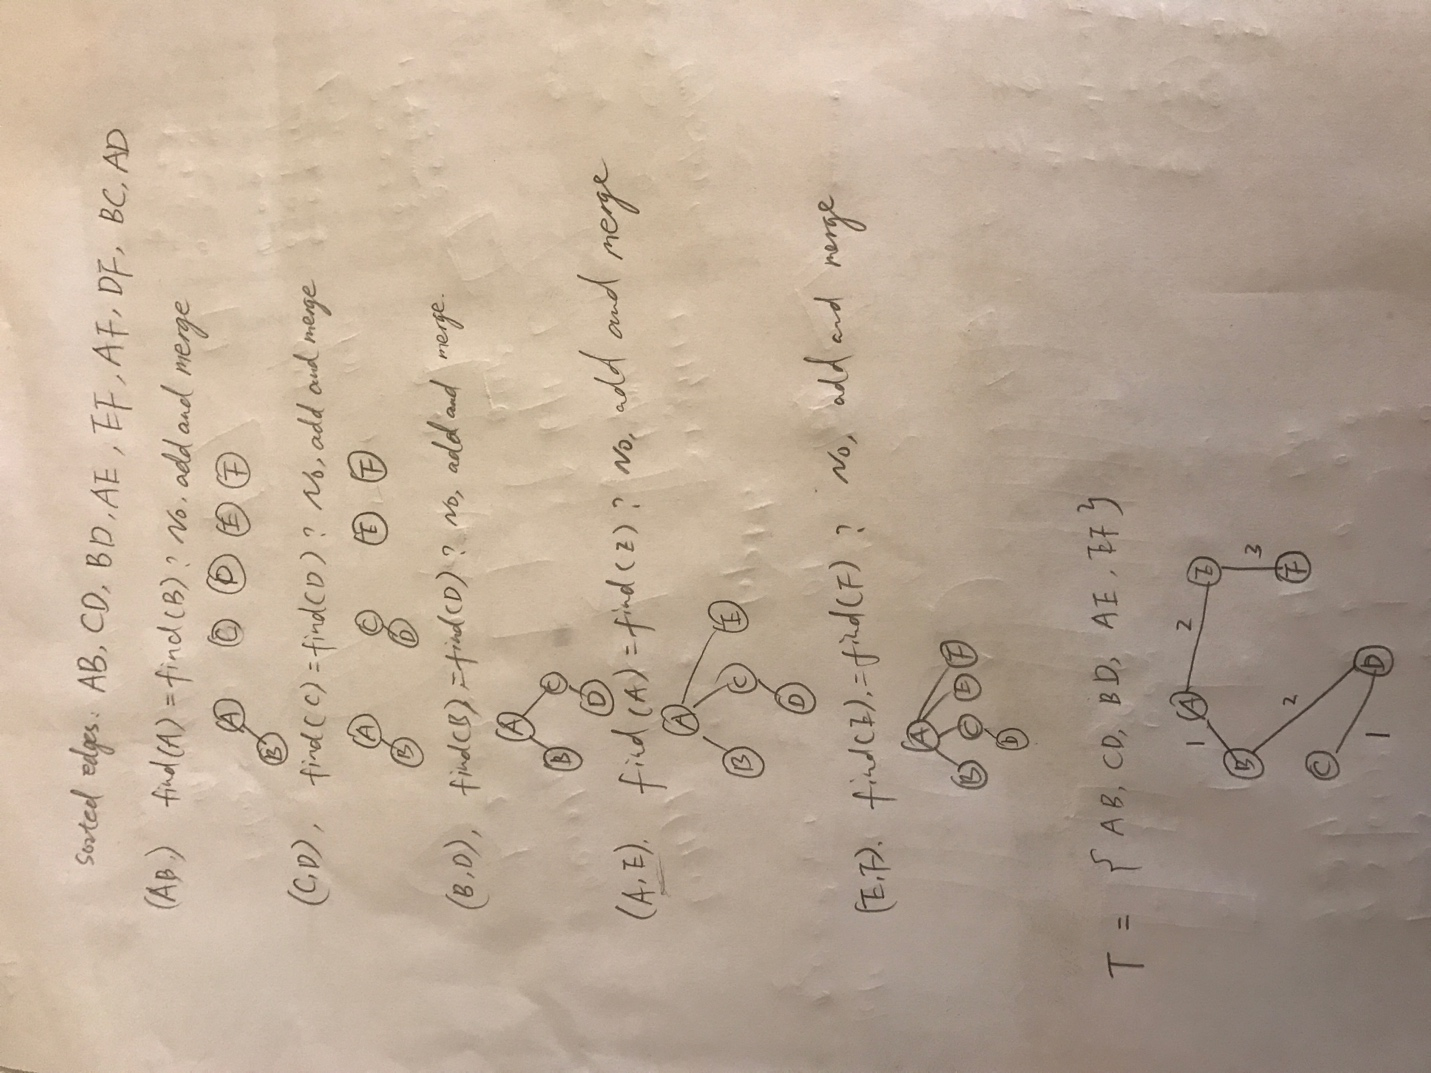 Sorted edges: AB, CD, BD, AE, EF, AF, DF, BC, AD
(AB.) find(A) = find(B)? No. add and merge
A C D E F
B
(C,D), find(C) = find(D)? No, add and merge
A C E F
B D
(B,D), find(B), = find(D)? No, add and merge.
A C
B D
(A,E). find(A) = find(E)? No, add and merge
A C E
B D
(E,F). find(E), = find(F)? No, add and merge
A
B C E F
D
T = { AB, CD, BD, AE, EF }
A 2 E
1 3
B F
2
C 1 D